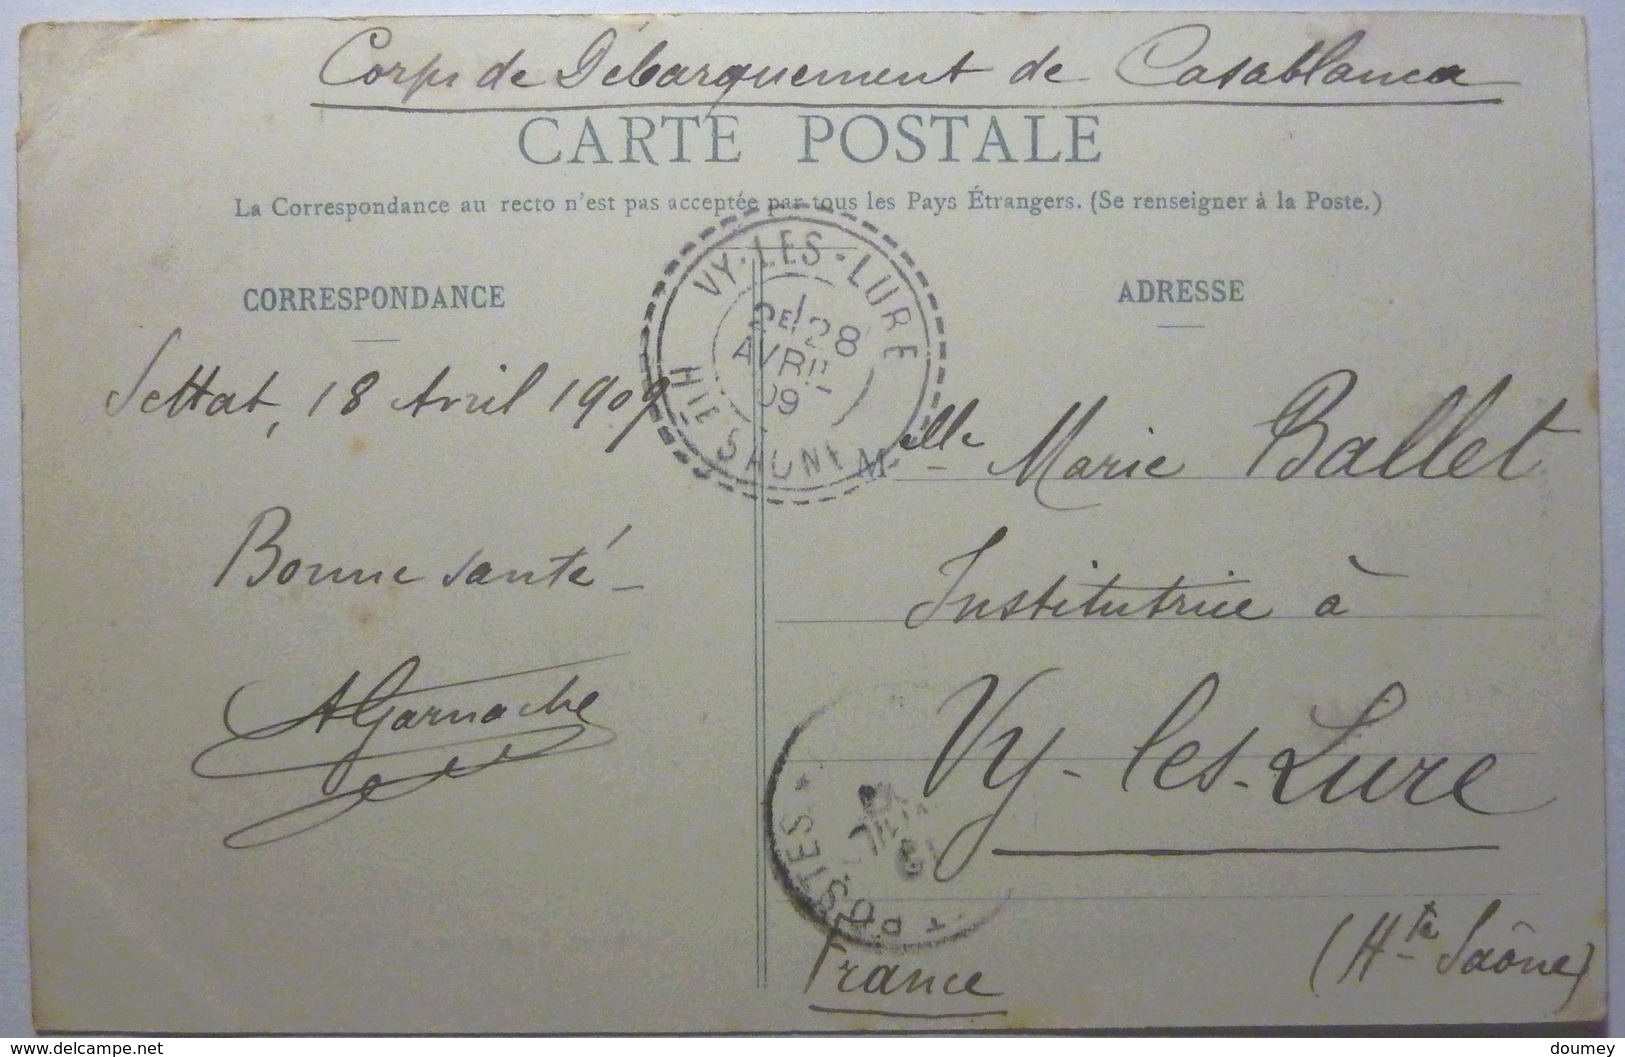 Corps de Débarquement de Casablanca
CARTE POSTALE
La Correspondance au recto n'est pas acceptée par tous les Pays Étrangers. (Se renseigner à la Poste.)
CORRESPONDANCE
ADRESSE
VY-LES-LURE
28
AVRIL
09
HTE SAÔNE
Settat, 18 Avril 1909
Bonne santé
AGarnache
Melle Marie Ballet
Institutrice à
Vy-les-Lure
(Hte Saône)
France
POSTES
delcampe.net
doumey